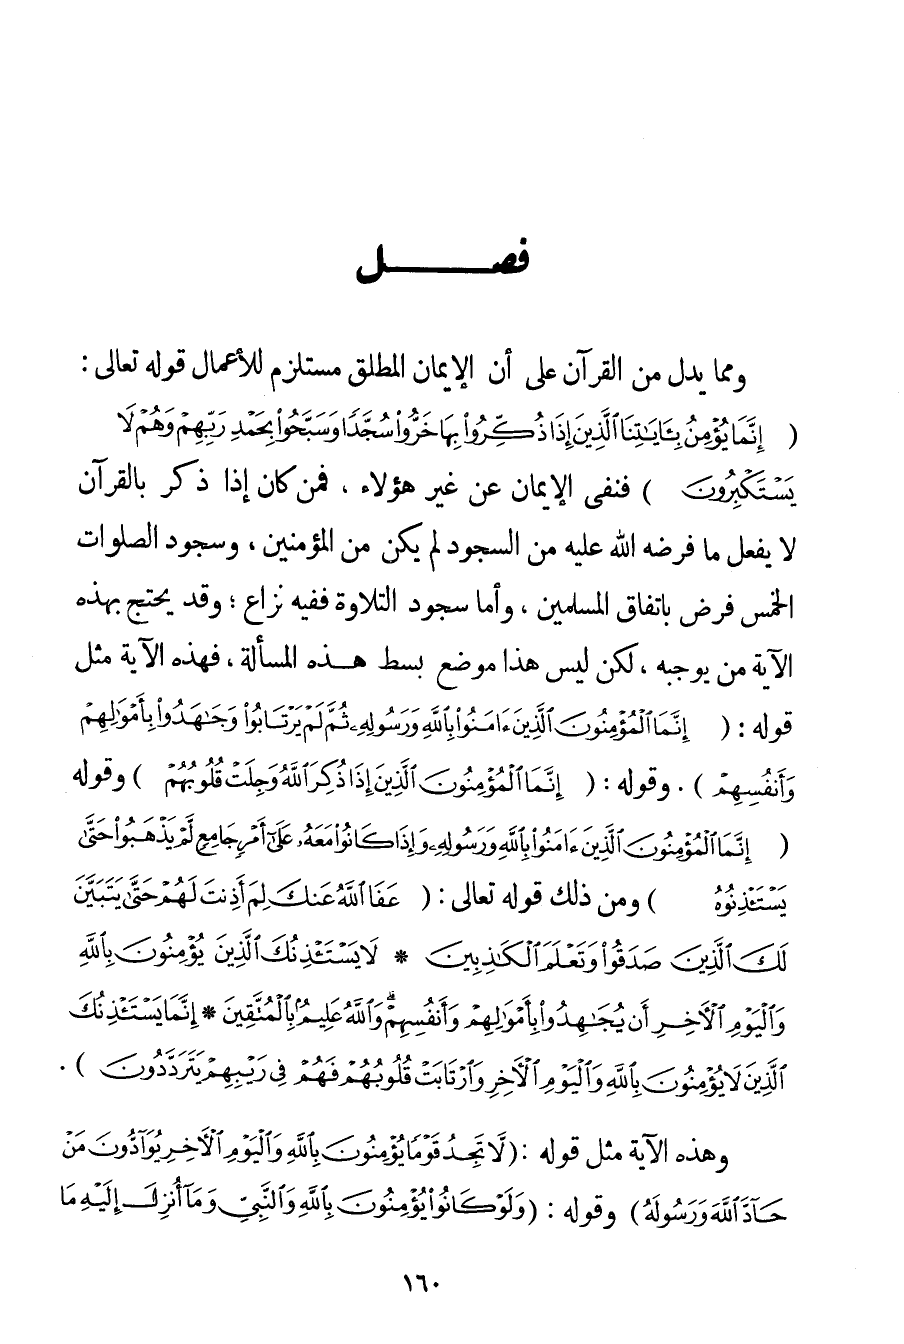 فصـــــــــل
ومما يدل من القرآن على أن الإيمان المطلق مستلزم للأعمال قوله تعالى :
( إِنَّمَا يُؤْمِنُ بِـَٔايَـٰتِنَا ٱلَّذِينَ إِذَا ذُكِّرُوا۟ بِهَا خَرُّوا۟ سُجَّدًا وَسَبَّحُوا۟ بِحَمْدِ رَبِّهِمْ وَهُمْ لَا
يَسْتَكْبِرُونَ ) فنفى الإيمان عن غير هؤلاء ، فمن كان إذا ذكر بالقرآن
لا يفعل ما فرضه الله عليه من السجود لم يكن من المؤمنين ، وسجود الصلوات
الخمس فرض باتفاق المسلمين ، وأما سجود التلاوة ففيه نزاع ؛ وقد يحتج بهذه
الآية من يوجبه ، لكن ليس هذا موضع بسط هـذه المسألة ، فهذه الآية مثل
قوله : ( إِنَّمَا ٱلْمُؤْمِنُونَ ٱلَّذِينَ ءَامَنُوا۟ بِٱللَّهِ وَرَسُولِهِۦ ثُمَّ لَمْ يَرْتَابُوا۟ وَجَـٰهَدُوا۟ بِأَمْوَٰلِهِمْ
وَأَنفُسِهِمْ ) . وقوله : ( إِنَّمَا ٱلْمُؤْمِنُونَ ٱلَّذِينَ إِذَا ذُكِرَ ٱللَّهُ وَجِلَتْ قُلُوبُهُمْ ) وقوله
( إِنَّمَا ٱلْمُؤْمِنُونَ ٱلَّذِينَ ءَامَنُوا۟ بِٱللَّهِ وَرَسُولِهِۦ وَإِذَا كَانُوا۟ مَعَهُۥ عَلَىٰٓ أَمْرٍ جَامِعٍ لَّمْ يَذْهَبُوا۟ حَتَّىٰ
يَسْتَـْٔذِنُوهُ ) ومن ذلك قوله تعالى : ( عَفَا ٱللَّهُ عَنكَ لِمَ أَذِنتَ لَهُمْ حَتَّىٰ يَتَبَيَّنَ
لَكَ ٱلَّذِينَ صَدَقُوا۟ وَتَعْلَمَ ٱلْكَـٰذِبِينَ * لَا يَسْتَـْٔذِنُكَ ٱلَّذِينَ يُؤْمِنُونَ بِٱللَّهِ
وَٱلْيَوْمِ ٱلْـَٔاخِرِ أَن يُجَـٰهِدُوا۟ بِأَمْوَٰلِهِمْ وَأَنفُسِهِمْ ۗ وَٱللَّهُ عَلِيمٌۢ بِٱلْمُتَّقِينَ * إِنَّمَا يَسْتَـْٔذِنُكَ
ٱلَّذِينَ لَا يُؤْمِنُونَ بِٱللَّهِ وَٱلْيَوْمِ ٱلْـَٔاخِرِ وَٱرْتَابَتْ قُلُوبُهُمْ فَهُمْ فِى رَيْبِهِمْ يَتَرَدَّدُونَ ) .
وهذه الآية مثل قوله : ( لَّا تَجِدُ قَوْمًا يُؤْمِنُونَ بِٱللَّهِ وَٱلْيَوْمِ ٱلْـَٔاخِرِ يُوَآدُّونَ مَنْ
حَآدَّ ٱللَّهَ وَرَسُولَهُ ) وقوله : ( وَلَوْ كَانُوا۟ يُؤْمِنُونَ بِٱللَّهِ وَٱلنَّبِىِّ وَمَآ أُنزِلَ إِلَيْهِ مَا
١٦٠